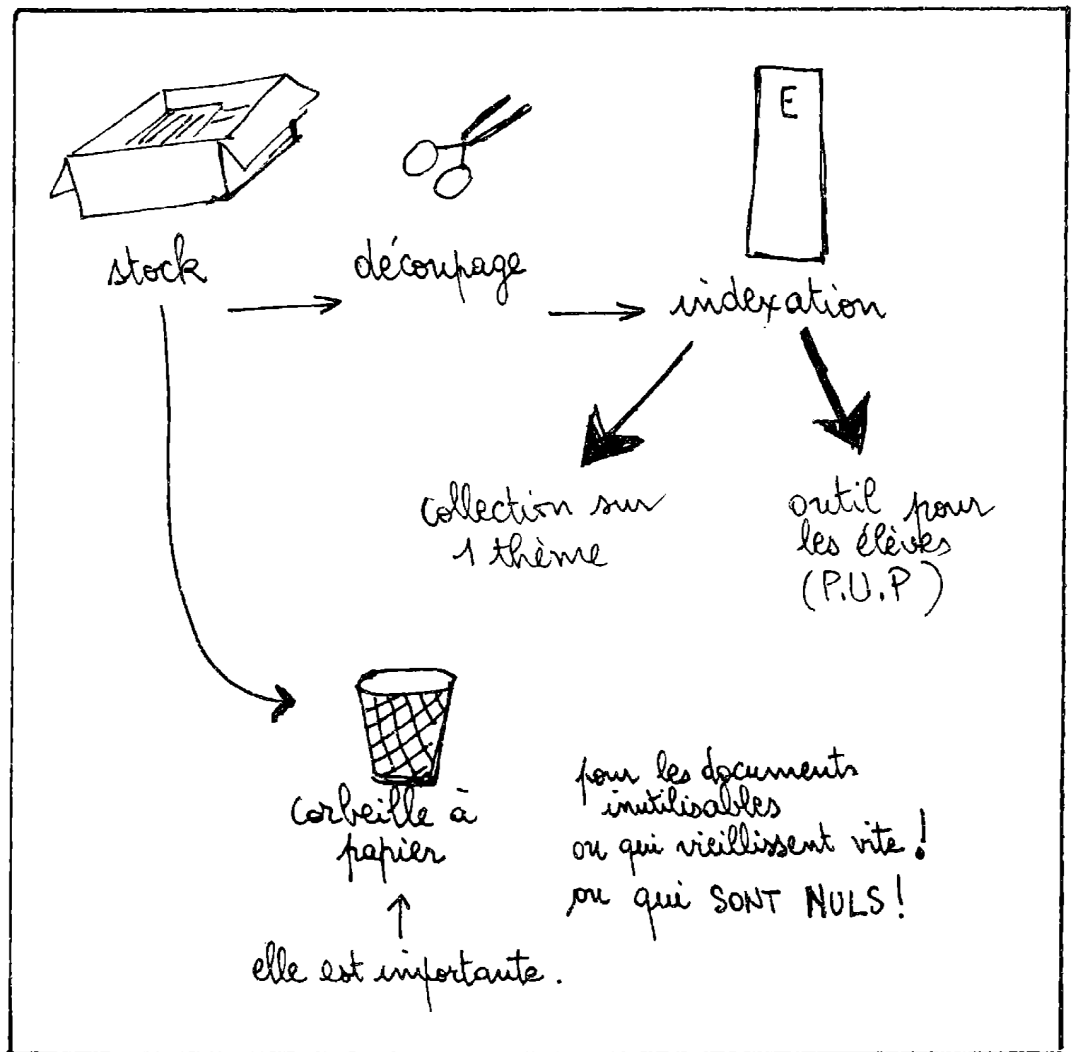 E
stock
découpage
indexation
collection sur
1 thème
outil pour
les élèves
(P.U.P)
corbeille à
papier
pour les documents
inutilisables
ou qui vieillissent vite !
ou qui SONT NULS !
elle est importante.